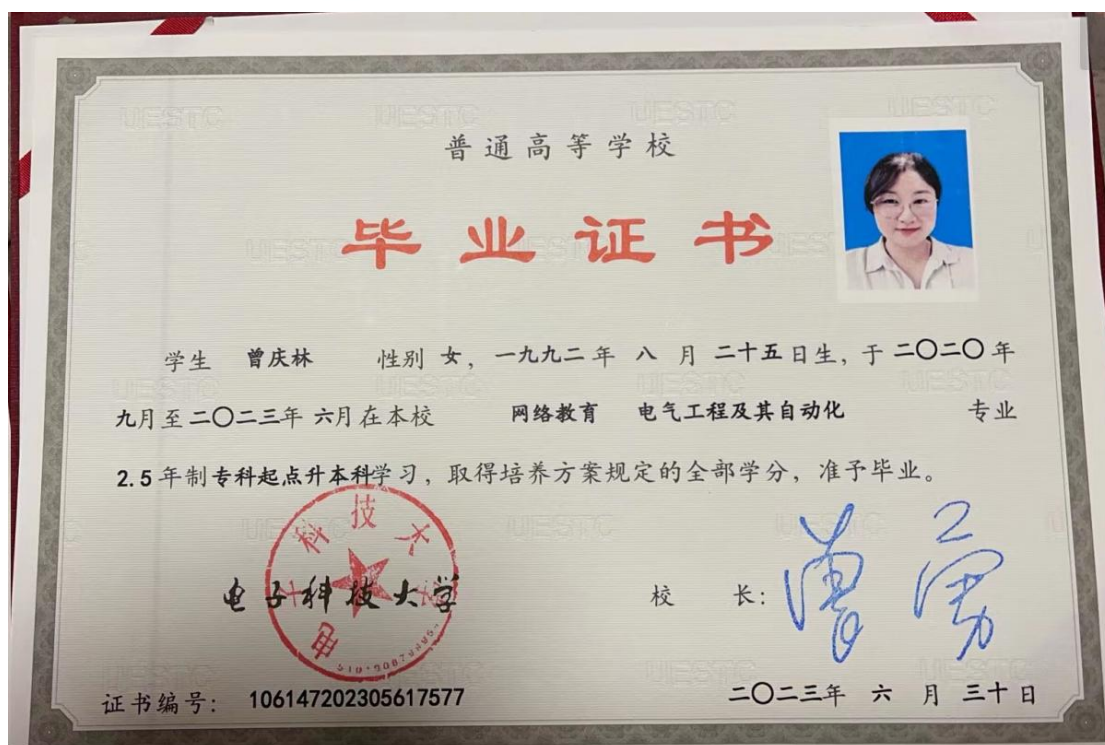 普通高等学校
毕业证书
学生 曾庆林 性别 女，一九九二 年 八 月 二十五日生，于 二〇二〇 年
九月至二〇二三年 六月在本校 网络教育 电气工程及其自动化 专业
2.5 年制专科起点升本科学习，取得培养方案规定的全部学分，准予毕业。
电子科技大学
校 长：曾勇
证书编号：106147202305617577
二〇二三年 六 月 三十日
UESTC